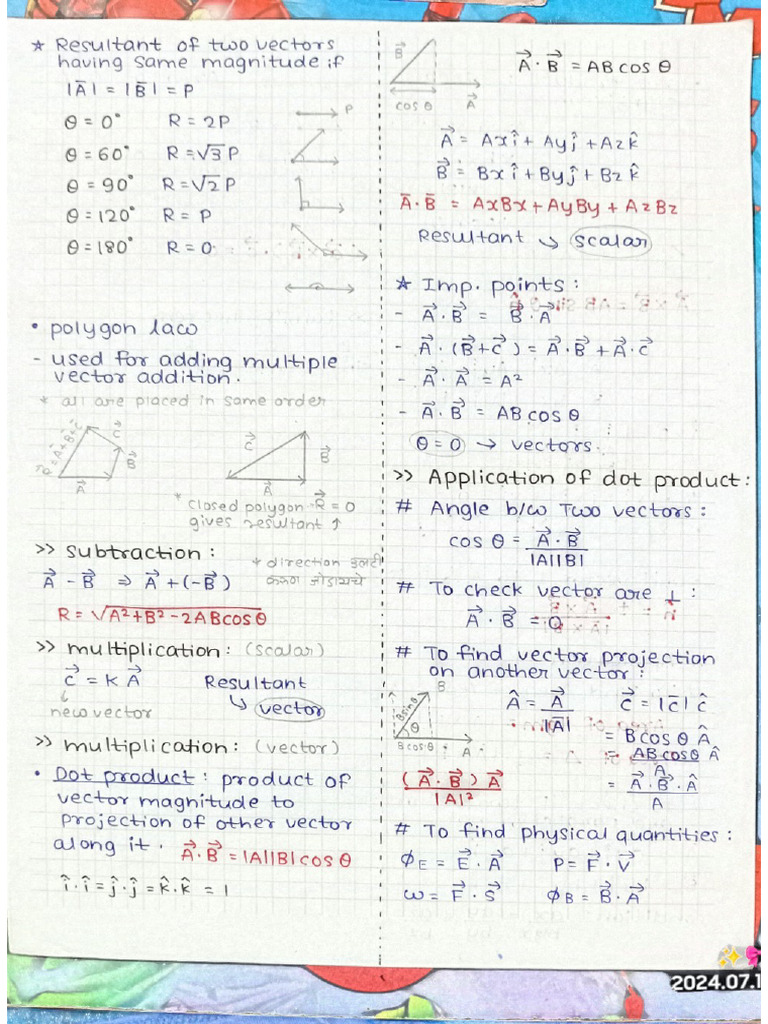 ★ Resultant of two vectors
having same magnitude if
|A̅| = |B̅| = P
θ = 0° R = 2P
P
θ = 60° R = √3 P
θ = 90° R = √2 P
θ = 120° R = P
θ = 180° R = 0
• polygon law
- used for adding multiple
vector addition.
* all are placed in same order
R⃗ = A⃗+B⃗+C⃗
C⃗
B⃗
A⃗
C⃗
B⃗
A⃗
* closed polygon R⃗ = 0
gives resultant ↑
>> subtraction :
* direction उलटी
करून जोडायचे
A⃗ - B⃗ ⇒ A⃗ + (-B⃗)
R = √A²+B²-2ABcosθ
>> multiplication : (scalar)
C⃗ = K A⃗ Resultant
↓ ↳ vector
new vector
>> multiplication : (vector)
• Dot product : product of
vector magnitude to
projection of other vector
along it. A⃗·B⃗ = |A||B|cosθ
î·î = ĵ·ĵ = k̂·k̂ = 1
B⃗
cosθ A⃗
A⃗·B⃗ = AB cosθ
A⃗ = Axî + Ayĵ + Azk̂
B⃗ = Bxî + Byĵ + Bzk̂
A̅·B̅ = AxBx + AyBy + AzBz
Resultant ↘ scalar
★ Imp. points :
- A⃗·B⃗ = B⃗·A⃗
- A⃗·(B⃗+C⃗) = A⃗·B⃗ + A⃗·C⃗
- A⃗·A⃗ = A²
- A⃗·B⃗ = AB cosθ
θ = 0 → vectors.
>> Application of dot product :
# Angle b/w Two vectors :
cosθ = A⃗·B⃗
|A||B|
# To check vector are ⊥ :
A⃗·B⃗ = 0
# To find vector projection
on another vector :
B
Bsinθ
θ
Bcosθ A
Â = A⃗ / |A̅| C⃗ = |C̅| ĉ
= Bcosθ Â
= ABcosθ / A Â
(A⃗·B⃗) A⃗ / |A|²
= A⃗·B⃗·Â / A
# To find physical quantities :
ϕE = E⃗·A⃗ P = F⃗·V⃗
ω = F⃗·S⃗ ϕB = B⃗·A⃗
2024.07.1